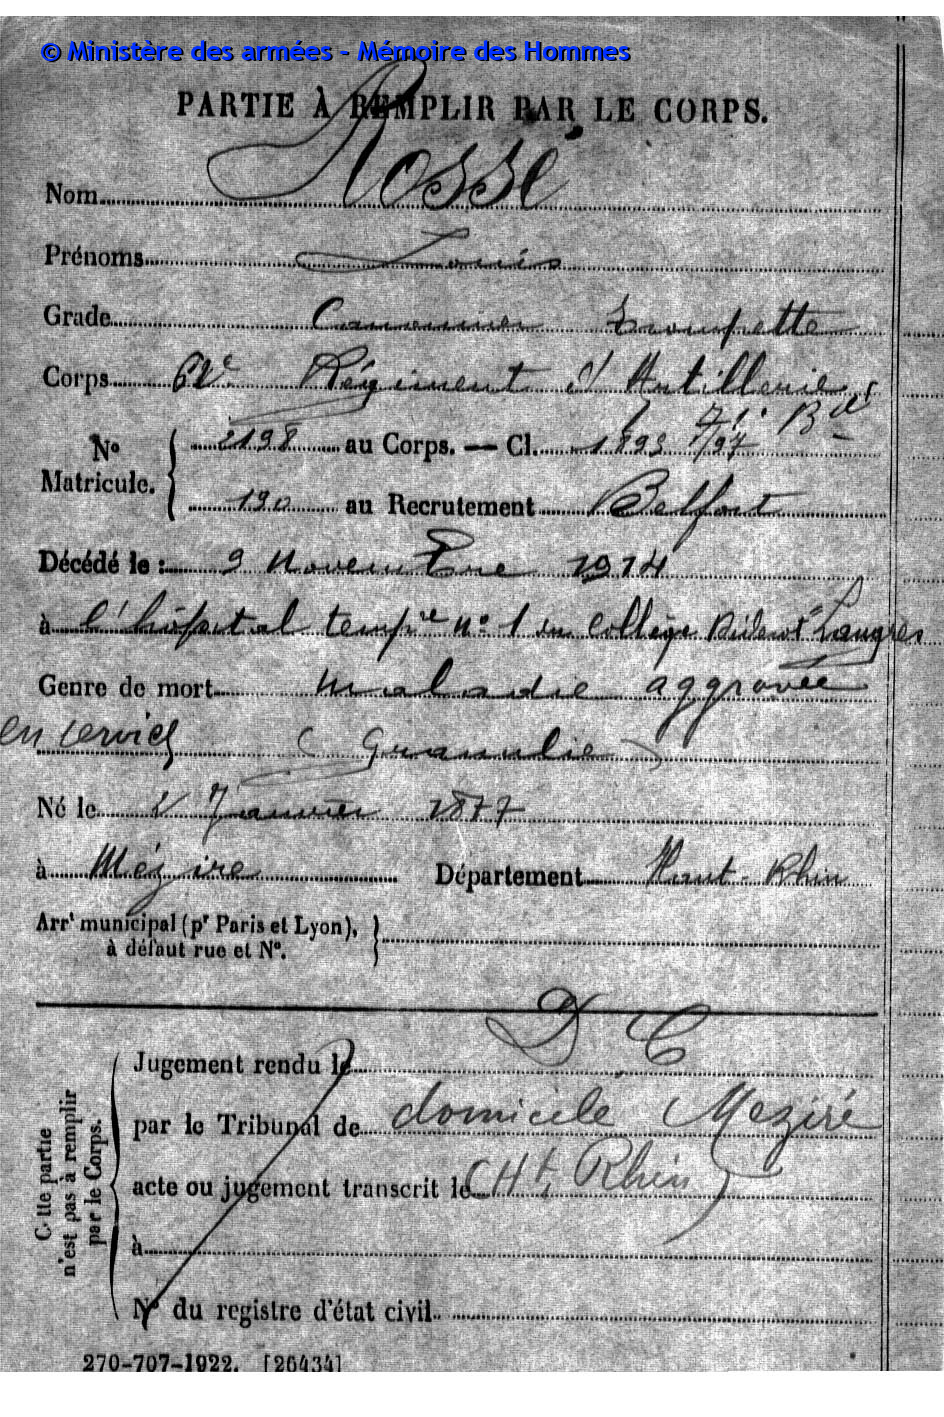 © Ministère des armées - Mémoire des Hommes
PARTIE À REMPLIR PAR LE CORPS.
Nom Rossé
Prénoms Louis
Grade Canonnier Trompette
Corps 62e Régiment d'Artillerie
71e Bie
No Matricule. 2198 au Corps. — Cl. 1893 /97
190 au Recrutement Belfort
Décédé le : 9 Novembre 1914
à l'hôpital tempre no 1 du Collège Diderot Langres
Genre de mort maladie aggravée
en service (Granulie)
Né le 2 Janvier 1877
à Méziré Département Haut-Rhin
Arrt municipal (pr Paris et Lyon),
à défaut rue et No.
D C
Jugement rendu le
par le Tribunal de domicile Meziré
acte ou jugement transcrit le (Ht Rhin)
à
No du registre d'état civil
Cette partie
n'est pas à remplir
par le Corps.
270-707-1922. [26434]